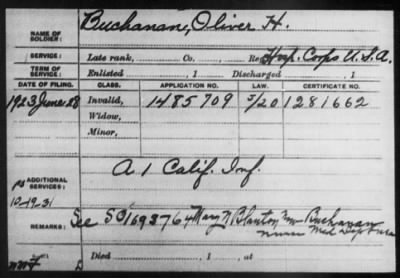 Buchanan, Oliver H.
NAME OF SOLDIER:
SERVICE: Late rank, Co. , Reg Hosp. Corps U.S.A.
TERM OF SERVICE: Enlisted , 1 Discharged , 1
DATE OF FILING. CLASS. APPLICATION NO. LAW. CERTIFICATE NO.
1923 June 28 Invalid, 1485709 3/20 1281662
Widow,
Minor,
ADDITIONAL SERVICES: A. 1 Calif. Inf.
10-19-31
REMARKS: See SO 1693764 Mary N Blanton now Buchanan
nurse Med Dept
Died , 1 , at